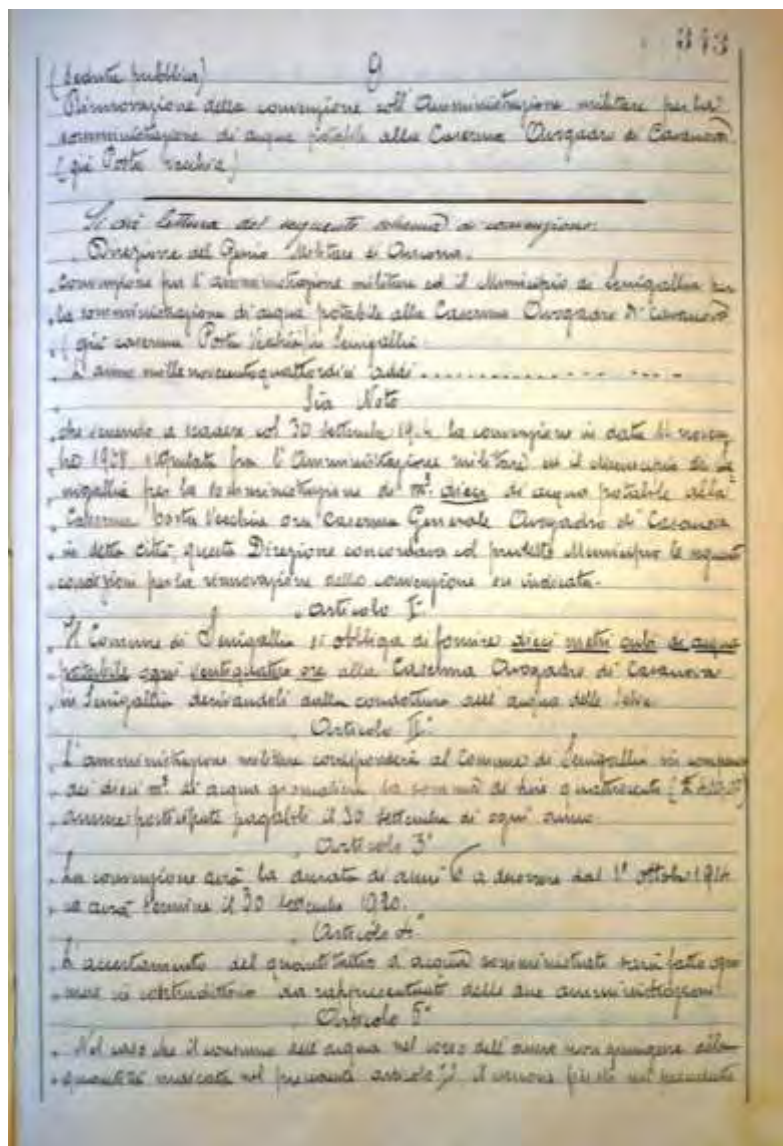 343
9
(Seduta pubblica)
Rinnovazione della convenzione coll'Amministrazione militare per la
somministrazione di acqua potabile alla Caserma Avogadro di Casanova
(già Porta Vecchia)
Si dà lettura del seguente schema di convenzione:
Direzione del Genio Militare di Ancona.
convenzione fra l'amministrazione militare ed il Municipio di Senigallia per
la somministrazione di acqua potabile alla Caserma Avogadro di Casanova
(già caserma Porta Vecchia) in Senigallia.
L'anno millenovecentoquattordici addì ..................
Sia Noto
che venendo a scadere col 30 settembre 1914 la convenzione in data novem
bre 1908 stipulata fra l'Amministrazione militare ed il Municipio di Se
nigallia per la somministrazione di m³. dieci di acqua potabile alla
Caserma Porta Vecchia ora Caserma Generale Avogadro di Casanova
in detta città, questa Direzione concordava col predetto Municipio le seguenti
condizioni per la rinnovazione della convenzione su indicata.
Articolo I°
Il Comune di Senigallia si obbliga di fornire dieci metri cubi di acqua
potabile ogni ventiquattro ore alla Caserma Avogadro di Casanova
in Senigallia derivandoli dalla conduttura dell'acqua delle Selve.
Articolo II°
L'amministrazione militare corrisponderà al Comune di Senigallia in compenso
dei dieci m³. di acqua giornalieri la somma di lire quattrocento
annue posticipate pagabili il 30 settembre di ogni anno.
Articolo 3°
La convenzione avrà la durata di anni 6 a decorrere dal 1° ottobre 1914
ed avrà termine il 30 settembre 1920.
Articolo 4°
L'accertamento del quantitativo d'acqua somministrato sarà fatto ogni
mese in contraddittorio da rappresentanti delle due amministrazioni
Articolo 5°
Nel caso che il consumo dell'acqua nel corso dell'anno non giungesse alla
quantità indicata nel precedente articolo I°, il canone nel precedente